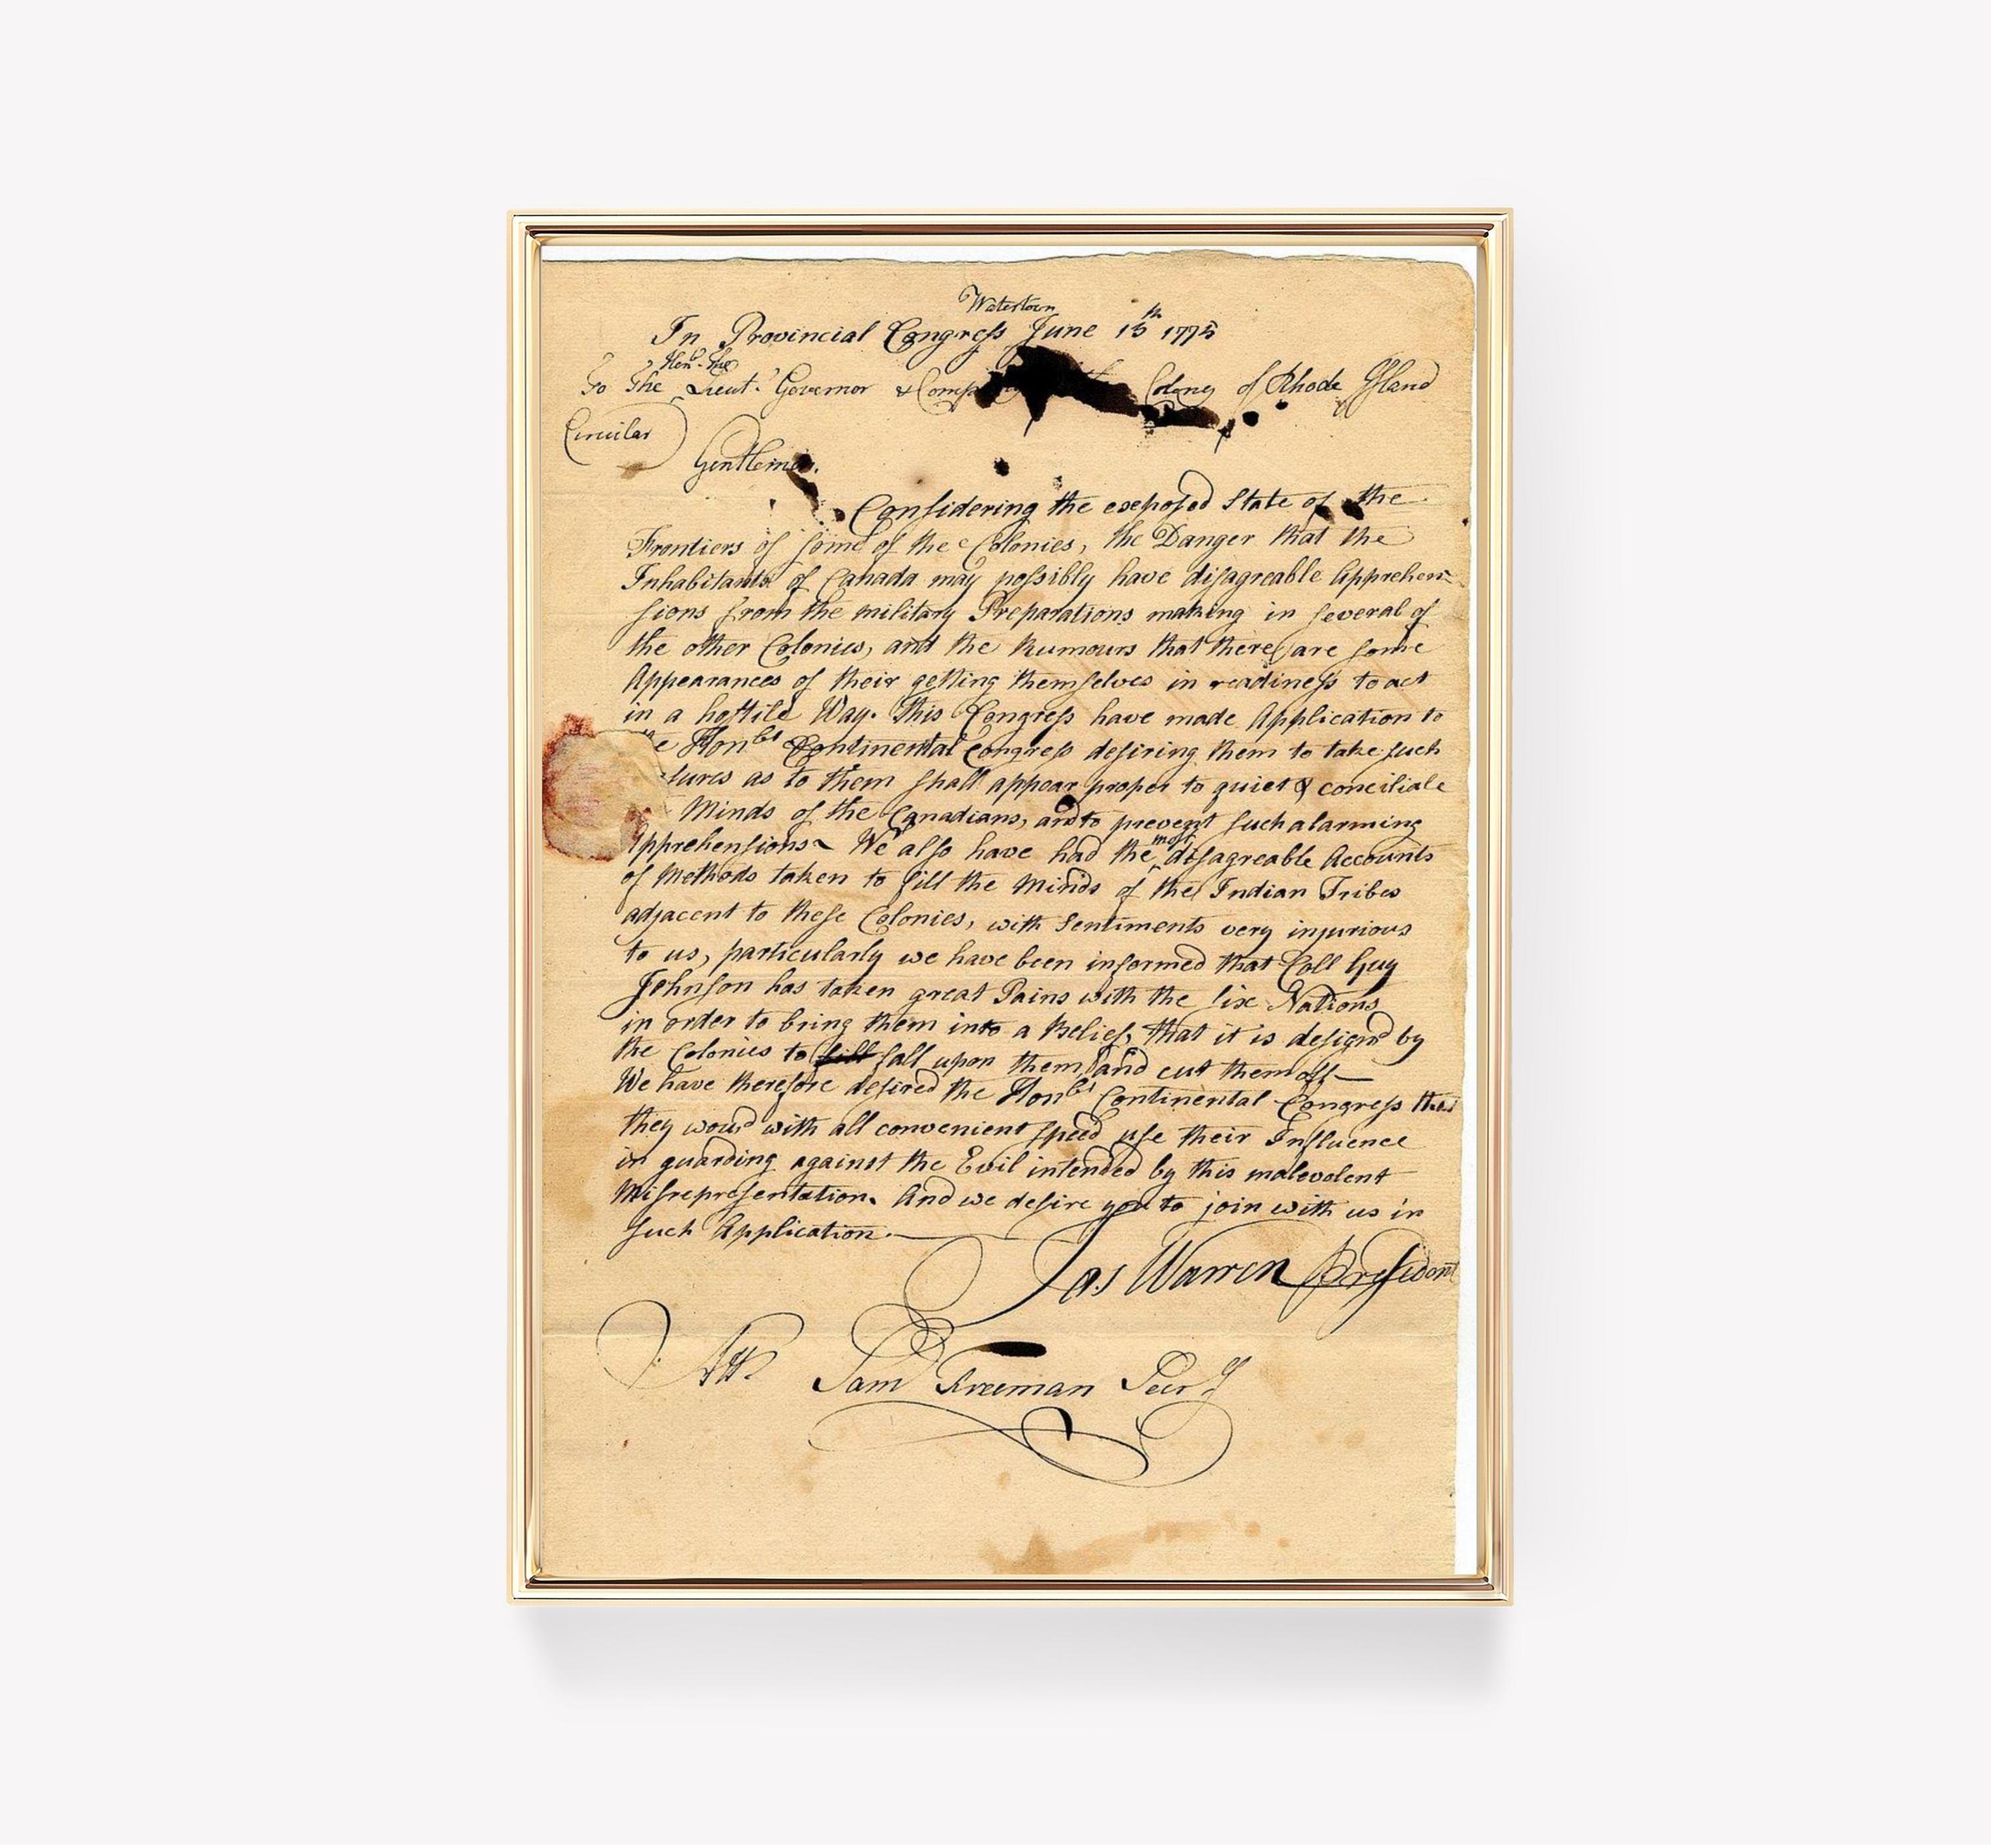 Watertown
In Provincial Congress June 15th 1775
Hon.d the
To the Lieut.t Governor & Comp the Colony of Rhode Island
Circular
Gentlemen.
Considering the exposed State of the
Frontiers of some of the Colonies, the Danger that the
Inhabitants of Canada may possibly have disagreable Apprehen-
sions from the military Preparations making in several of
the other Colonies, and the Rumours that there are some
Appearances of their getting themselves in readiness to act
in a hostile Way. This Congress have made Application to
e Honble Continental Congress desiring them to take such
sures as to them shall appear proper to quiet & conciliate
Minds of the Canadians, and to prevent such alarming
Apprehensions~ We also have had the most disagreable Accounts
of Methods taken to fill the Minds of the Indian Tribes
adjacent to these Colonies, with Sentiments very injurious
to us, particularly we have been informed that Coll Guy
Johnson has taken great Pains with the Six Nations
in order to bring them into a Belief, that it is design'd by
the Colonies to fall upon them, and cut them off—
We have therefore desired the Honble Continental Congress that
they would with all convenient Speed use their Influence
in guarding against the Evil intended by this malevolent
Misrepresentation. And we desire you to join with us in
such Application.
Jas Warren President
Attr Saml Freeman Secry